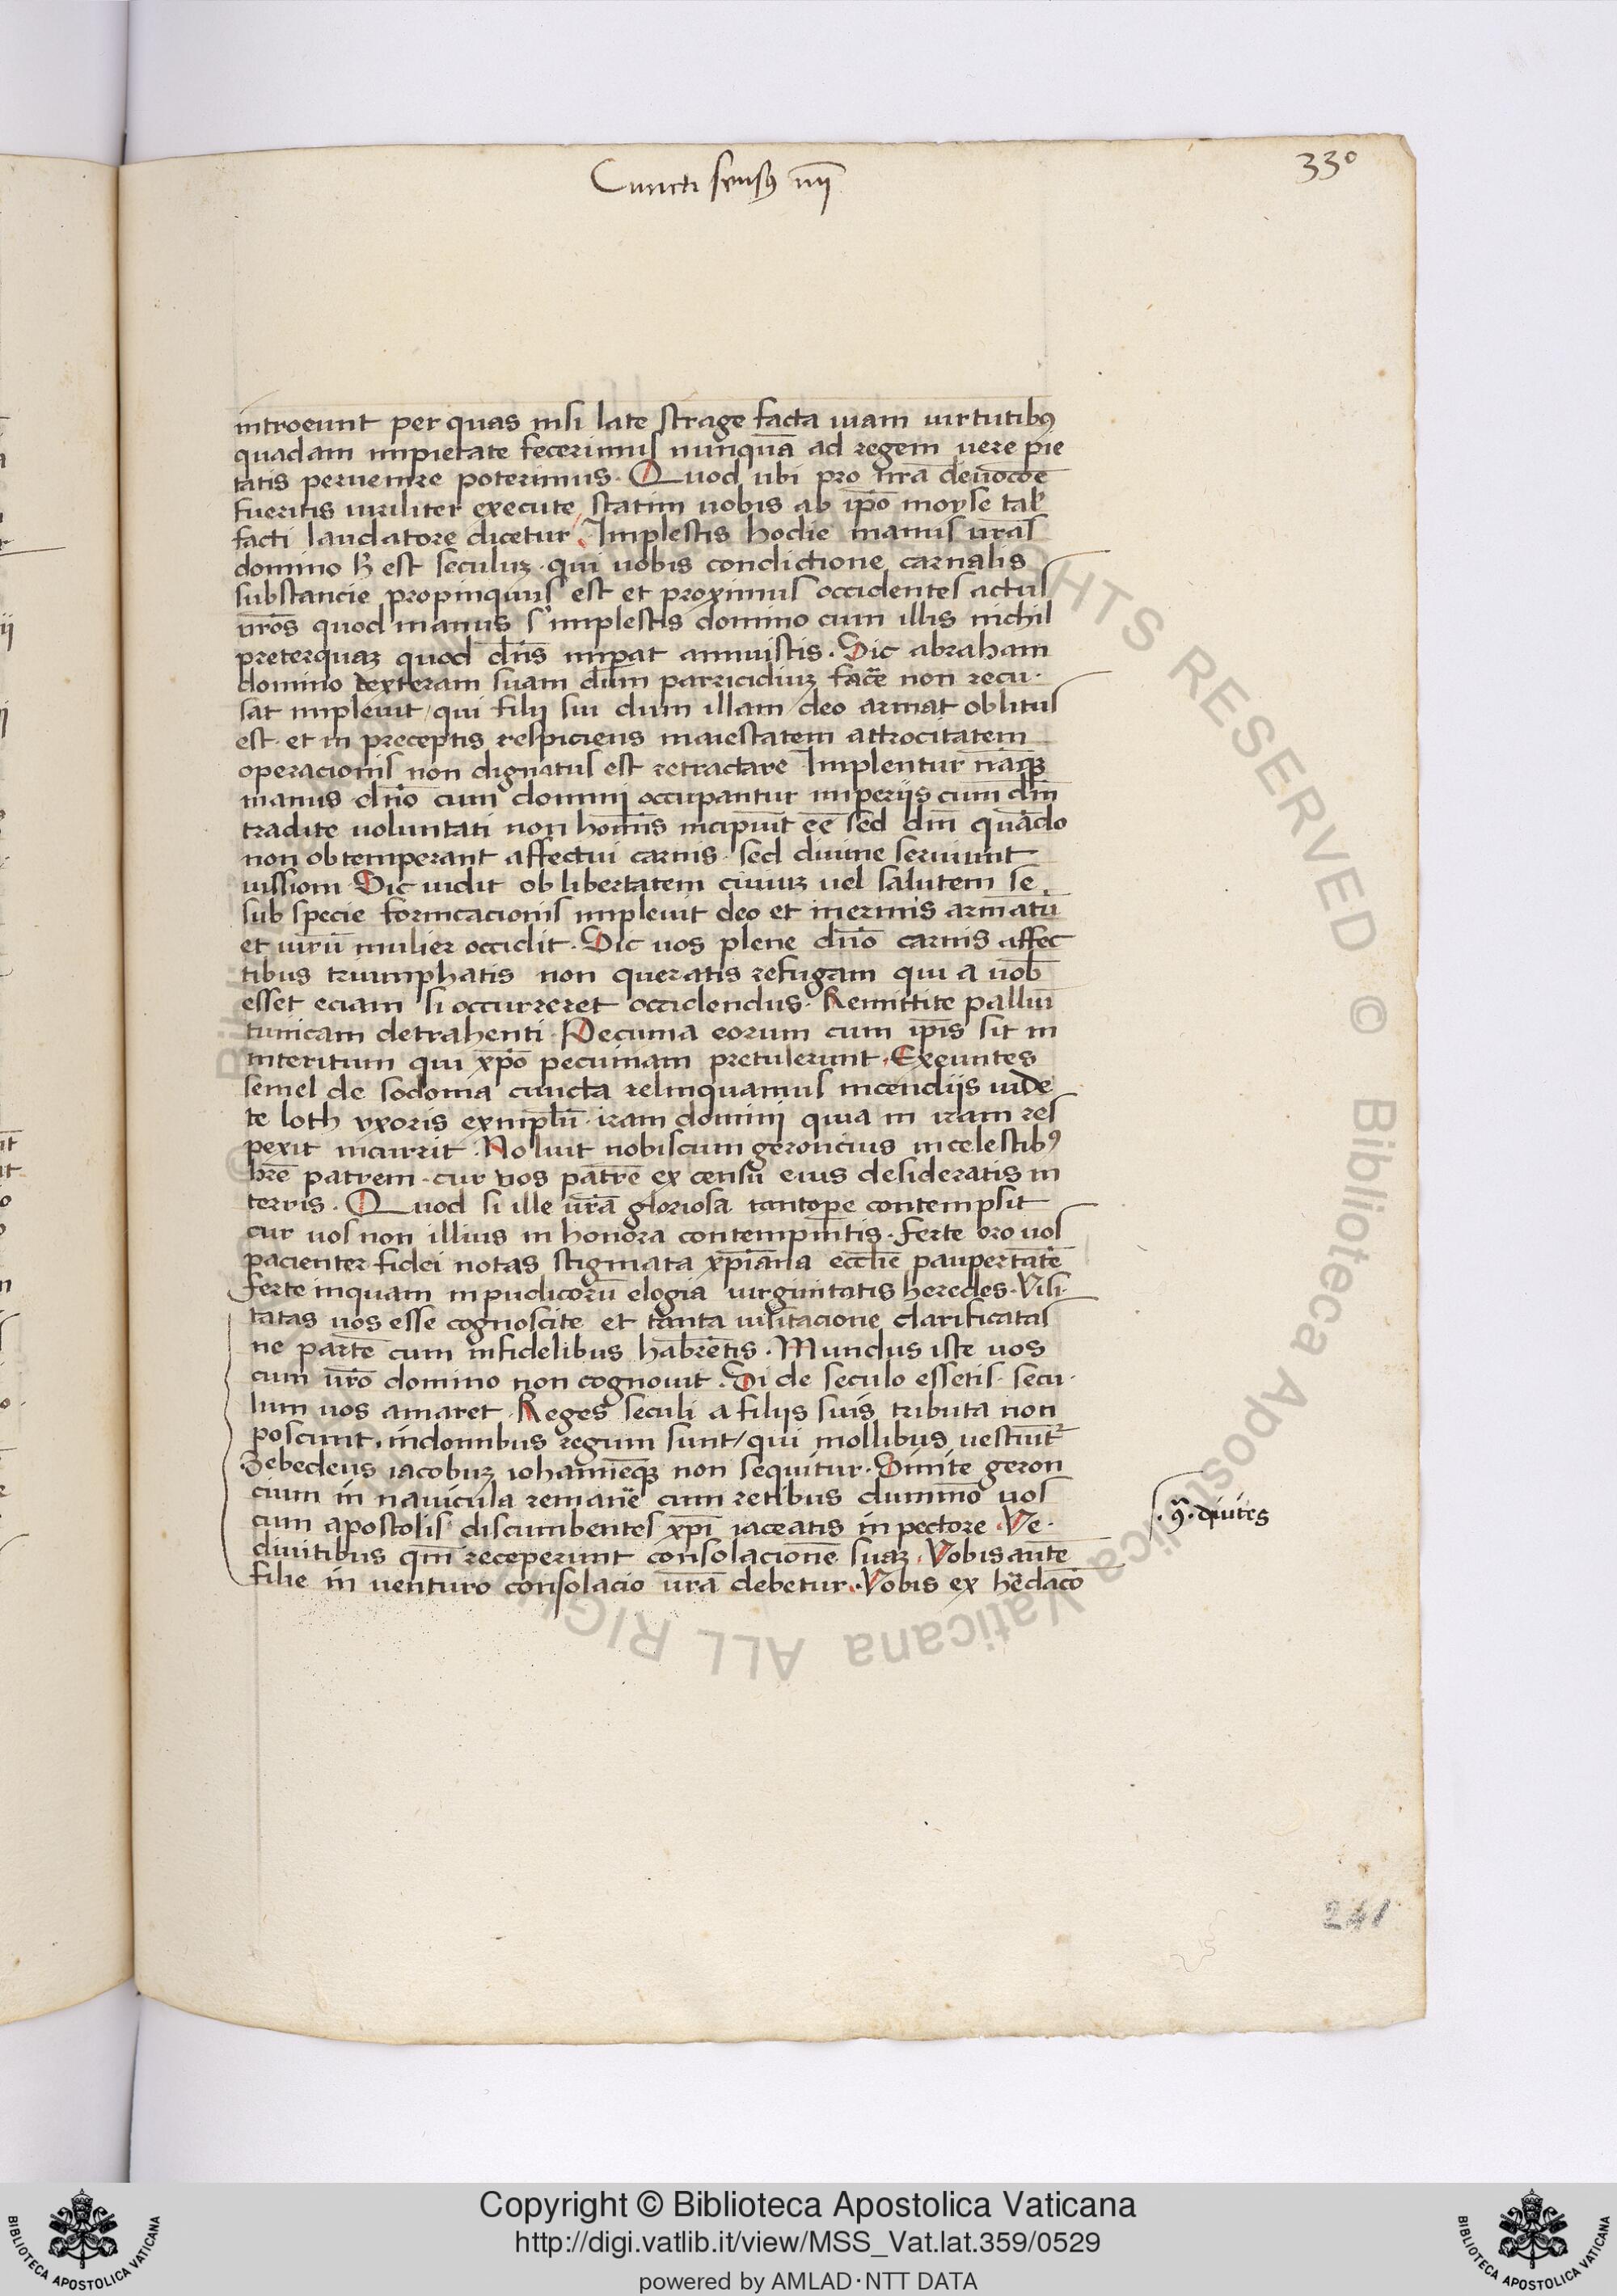 Cuncti sensꝰ iiij
330
introeunt per quas nisi late strage facta uiam uirtutibꝰ
quadam impietate fecerimus nunquā ad regem uere pie
tatis peruenire poterimus. Quod ubi pro nr̄a deuocōe
fueritis uiriliter execute statim uobis ab ip̄o moyse tal̕
facti laudatore dicetur Implestis hodie manus ur̄as
domino h̕ est seculuꝫ qui uobis condictione carnalis
substancie propinquus est et proximus occidentes actus
ur̄os quod manus implestis domino cum illis nichil
preterquaꝫ quod dn̄s imꝑat annuistis. Sic abraham
domino dexteram suam dum parricidiuꝫ fac̄e non recu
sat impleuit / qui filij sui dum illam deo armat oblitus
est et in preceptis respiciens maiestatem attrocitatem
operacionis non dignatus est retractare Implentur nāqꝫ
manus dn̄o cum domini occupantur imperijs cum dn̄i
tradite uoluntati non hom̄is incipiūt ee̅ sed dn̄i quādo
non obtemperant affectui carnis sed diuine seruiunt
iussiom Sic iudit ob libertatem ciuiuꝫ uel salutem se
sub specie fornicacionis impleuit deo et inermis armatū
et uirū mulier occidit. Sic uos plene dn̄o carnis affec
tibus triumphatis non queratis refugam qui a uob̄
esset eciam si occurreret occidendus. Remittite palliū
tunicam detrahenti Pecunia eorum cum ip̄is sit in
interitum qui xp̄o pecuniam pretulerunt. Exeuntes
semel de sodoma cuncta relinquamus incendijs uide
te loth uxoris exmplū iram domini quia in iram res
pexit incurrit. Noluit nobiscum geroncius in celestibꝰ
hr̄e patrem cur uos patrē ex censu eius desideratis in
terris. Quod si ille ur̄a gloriosa tantoꝑe contempsit
cur uos non illius in honora contempnitis. ferte oro uos
pacienter fidei notas stigmata xp̄iana eccl̄ie paupertatē
ferte inquam inpudicorū elogia uirginitatis heredes. Visi
tatas uos esse cognoscite et tanta uisitacione clarificatas
ne partē cum infidelibus habr̄etis. Mundus iste uos
cum ur̄o domino non cognouit. Si de seculo essetis secu
lum uos amaret Reges seculi a filijs suis tributa non
poscunt. in domibus regum sunt / qui mollibus uestiūtᷣ
Zebedeus iacobuꝫ iohannēqꝫ non sequitur. Sinite geron
cium in nauicula remanēe cum retibus dummō uos
cum apostolis discumbentes xp̄i iaceatis in pectore. Ve
diuitibus qm̄ receperunt consolacionē suaꝫ. Vobis autē
filie in uenturo consolacio ur̄a debetur. Vobis ex hēdacō
ꝯ. diuites
241
Copyright © Biblioteca Apostolica Vaticana
http://digi.vatlib.it/view/MSS_Vat.lat.359/0529
powered by AMLAD·NTT DATA
BIBLIOTECA APOSTOLICA VATICANA
BIBLIOTECA APOSTOLICA VATICANA
© Biblioteca Apostolica Vaticana ALL RIGHTS RESERVED